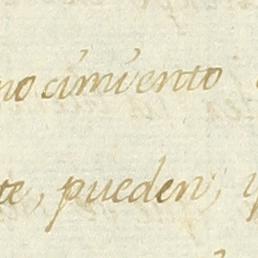 nocimiento
te, pueden; y